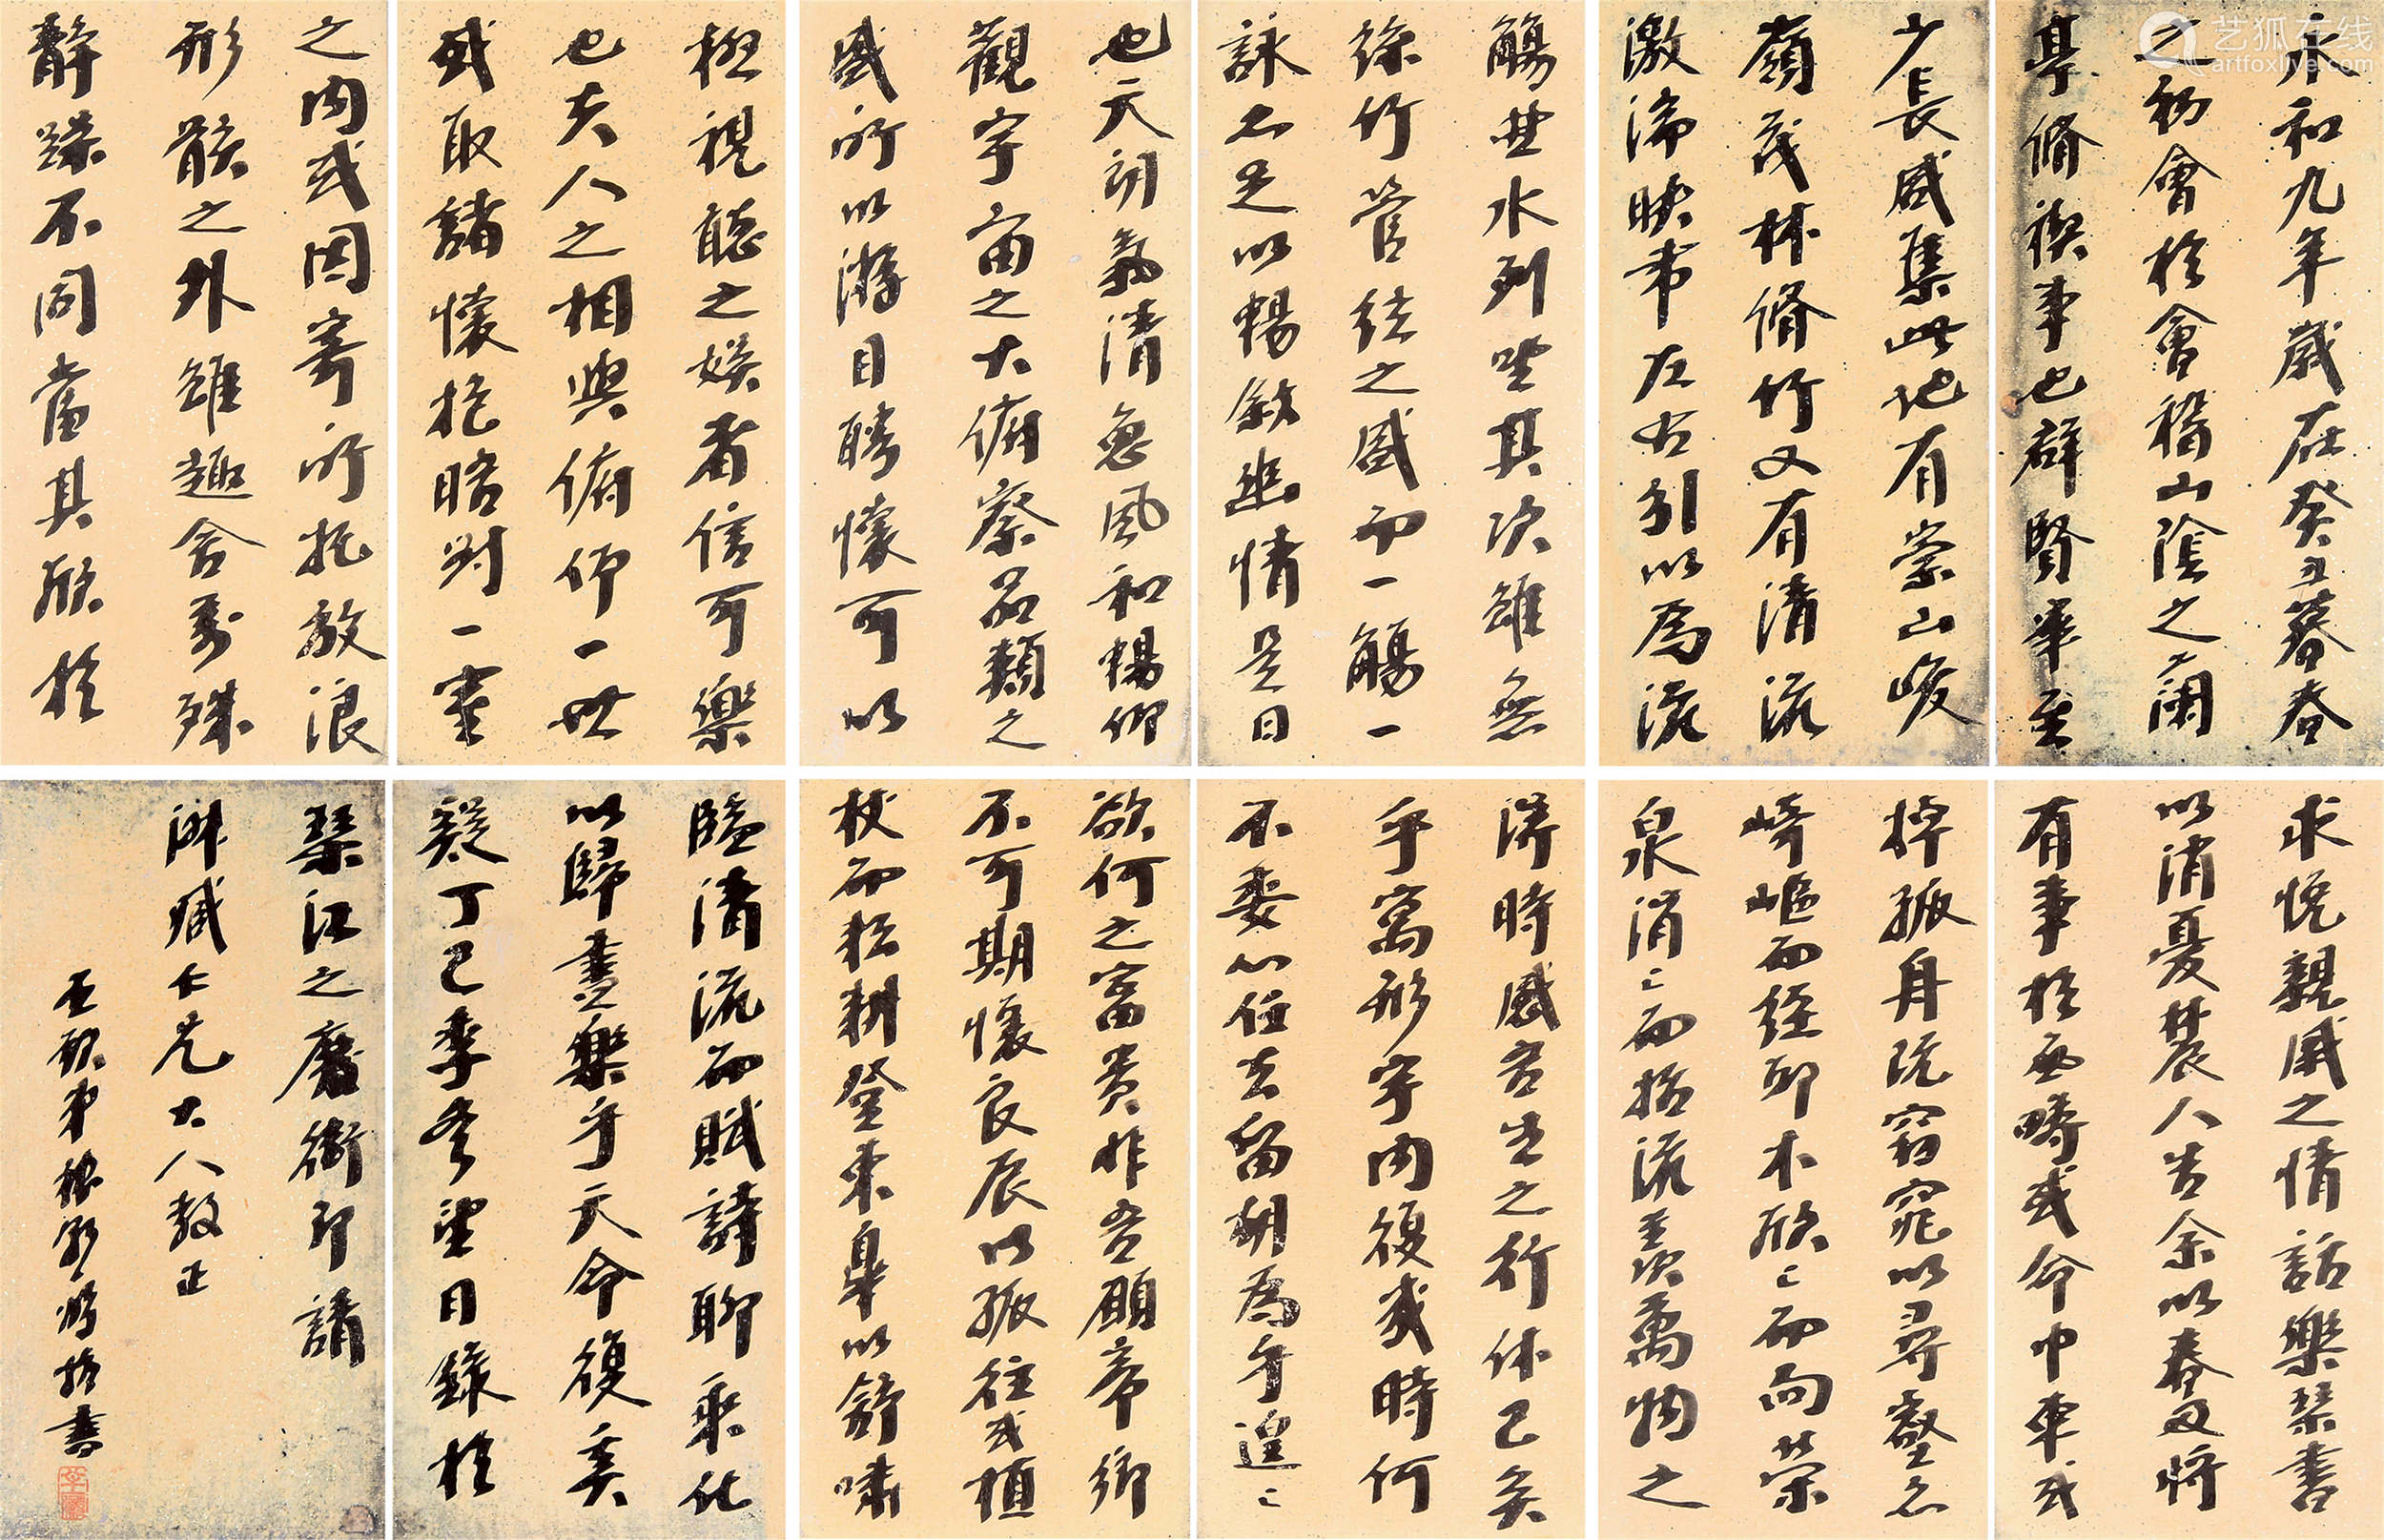 艺狐在线
artfoxlive.com
永和九年歲在癸丑暮春
之初會於會稽山陰之蘭
亭脩禊事也群賢畢至
少長咸集此地有崇山峻
嶺茂林脩竹又有清流
激湍映帶左右引以為流
觴曲水列坐其次雖無
絲竹管絃之盛而一觴一
詠亦足以暢敘幽情是日
也天朗氣清惠風和暢仰
觀宇宙之大俯察品類之
盛所以游目騁懷可以
極視聽之娛者信可樂
也夫人之相與俯仰一世
或取諸懷抱晤對一室
之內或因寄所托放浪
形骸之外雖趣舍萬殊
靜躁不同當其欣於
求悅親戚之情話樂琴書
以消憂農人告余以春及將
有事於西疇或命巾車或
棹孤舟既窈窕以尋壑亦
崎嶇而經邱木欣〻而向榮
泉涓〻而始流羨萬物之
得時感吾生之行休已矣
乎寓形宇內復幾時何
不委心任去留胡為乎遑〻
欲何之富貴非吾願帝鄉
不可期懷良辰以孤往或植
杖而耘耕登東皋以舒嘯
臨清流而賦詩聊乘化
以歸盡樂乎天命復奚
疑丁巳季冬望日錄於
琴江之衙即請
仁兄大人教正
弟書